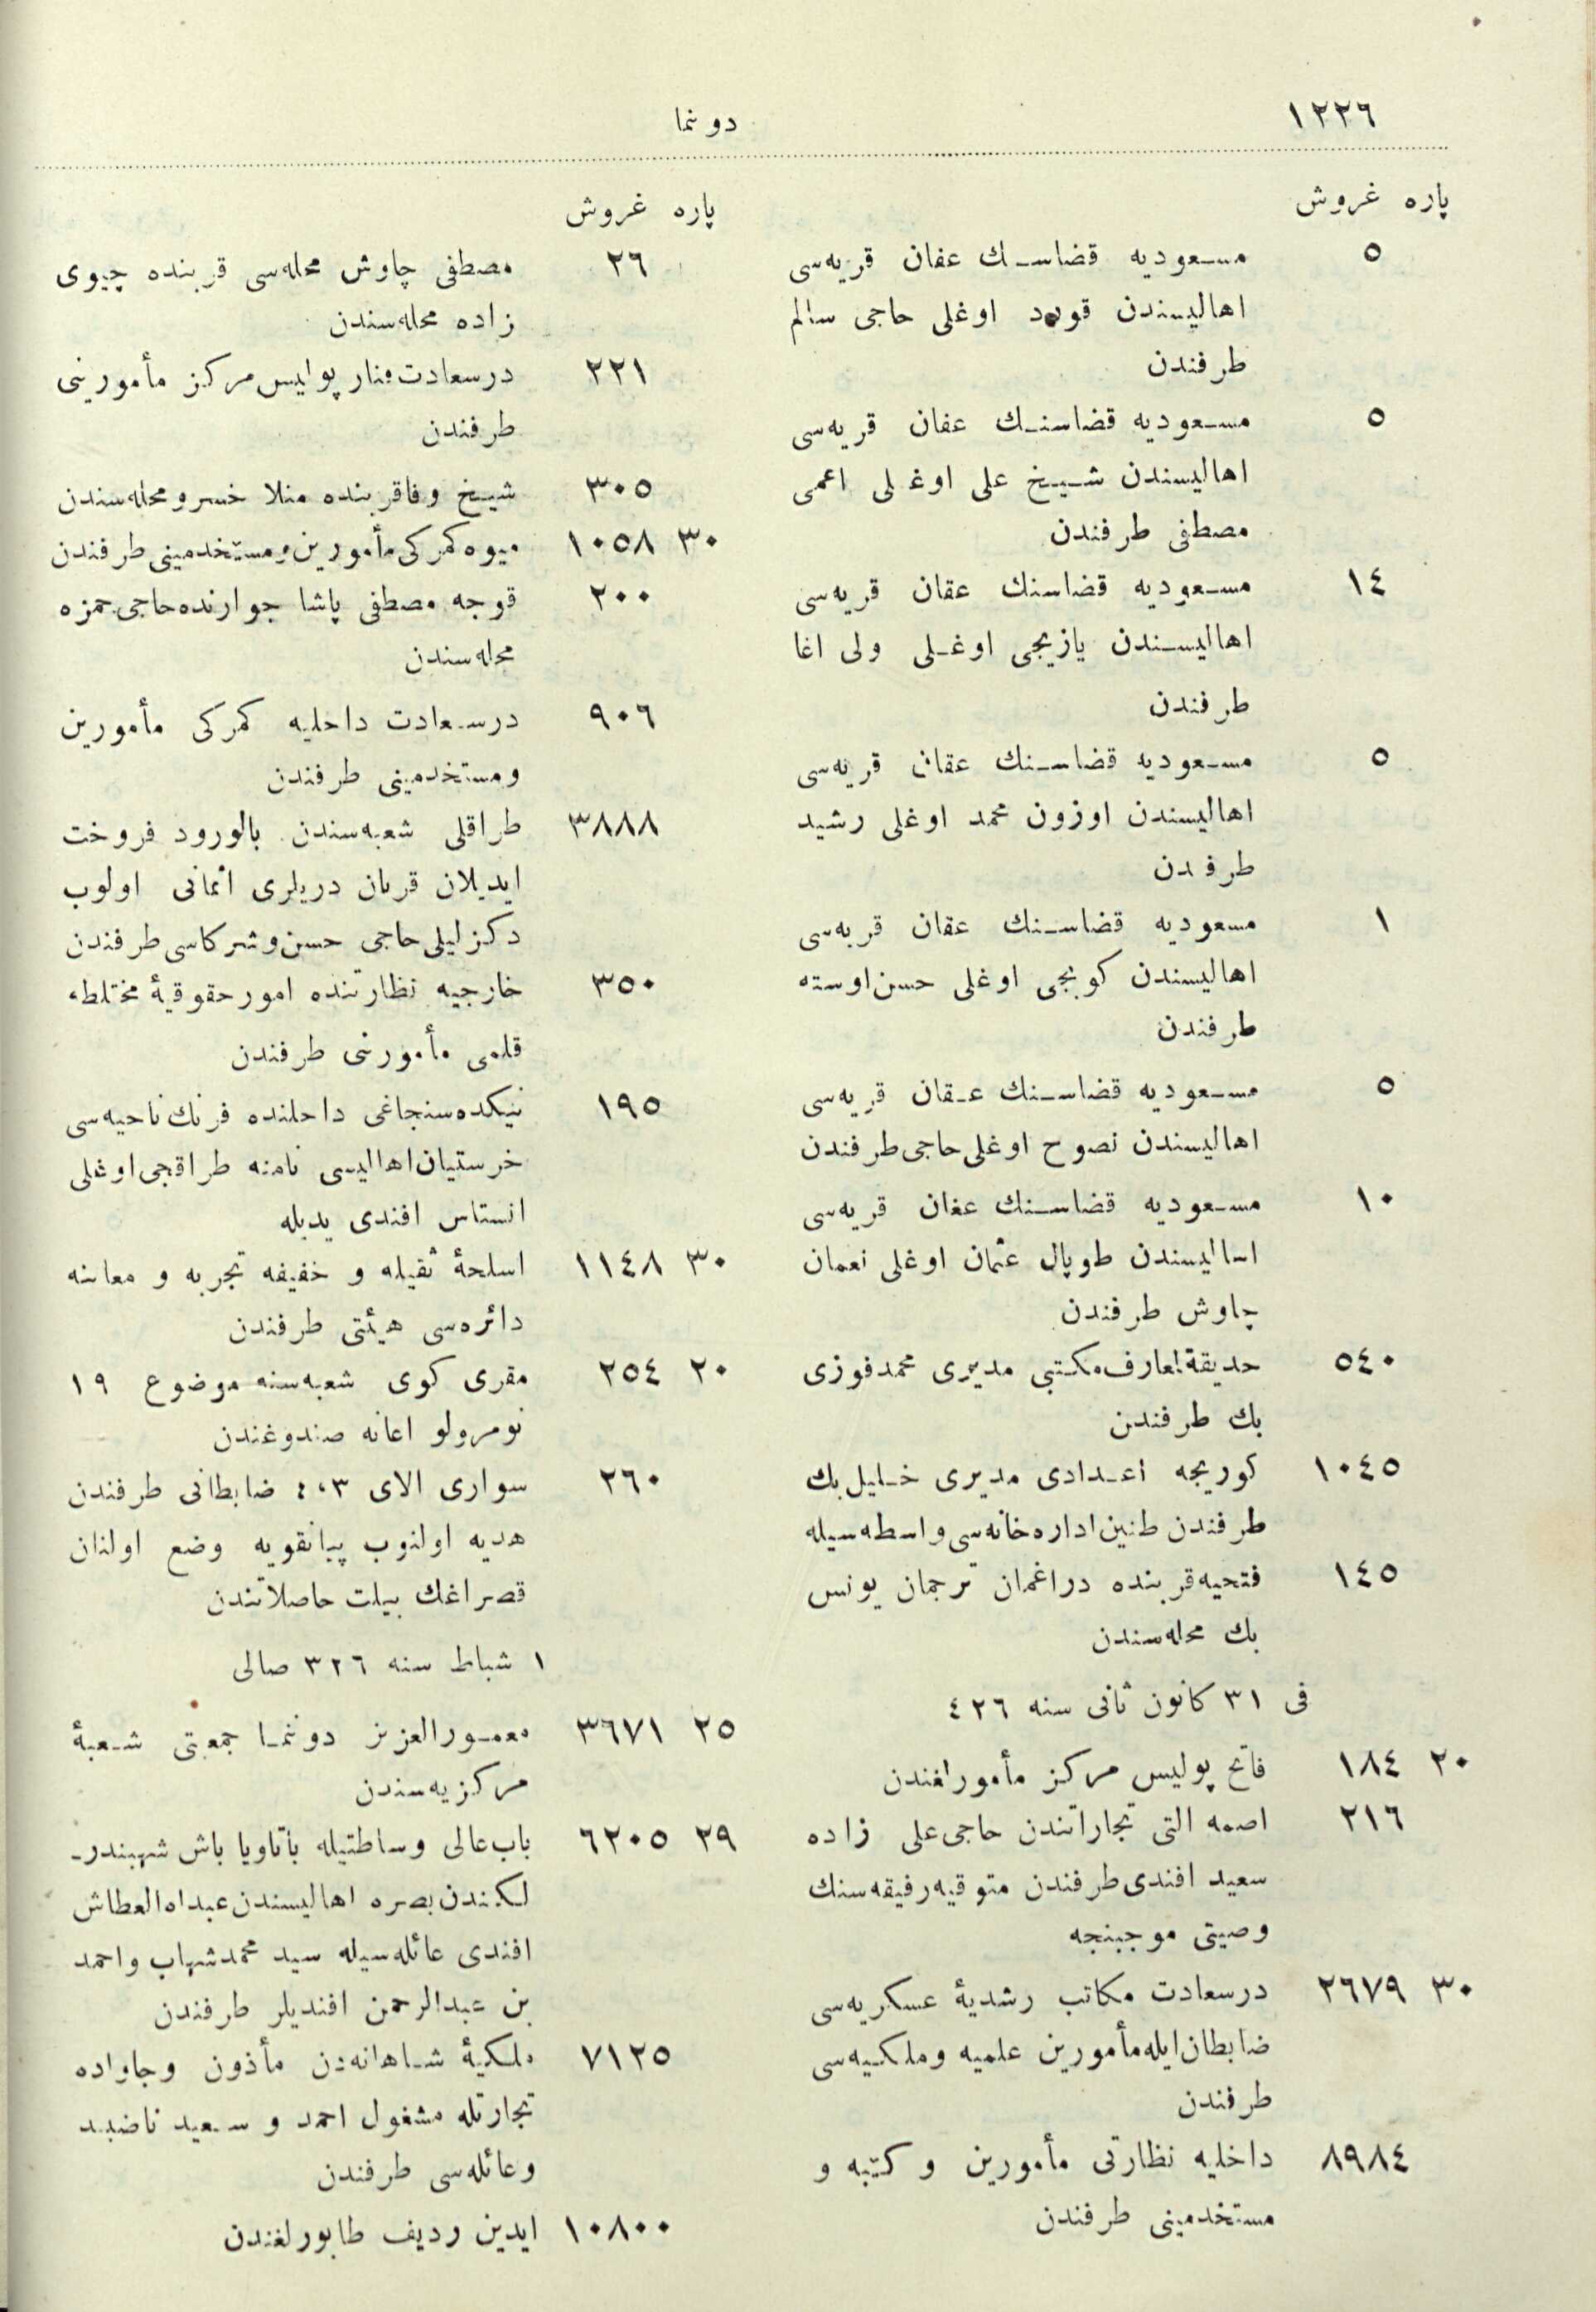 ١٢٢٦
دونما
پاره غروش
٥ مسعوديه قضاسنك عفان قريه‌سى
اهاليسندن اوغلى حاجى سالم
طرفندن
٥ مسعوديه قضاسنك عفان قريه‌سى
اهاليسندن شيخ على اوغلى اعمى
مصطفى طرفندن
١٤ مسعوديه قضاسنك عقان قريه‌سى
اهاليسندن يازيجى اوغلى ولى اغا
طرفندن
٥ مسعوديه قضاسنك عقان قريه‌سى
اهاليسندن اوزون محمد اوغلى رشيد
طرفندن
١ مسعوديه قضاسنك عقان قريه‌سى
اهاليسندن كوبجى اوغلى حسن اوسته
طرفندن
٥ مسعوديه قضاسنك عقان قريه‌سى
اهاليسندن نصوح اوغلى حاجى طرفندن
١٠ مسعوديه قضاسنك عفان قريه‌سى
اهاليسندن طوپال عثمان اوغلى نعمان
چاوش طرفندن
٥٤٠ حديقةالمعارف مكتبى مديرى محمد فوزى
بك طرفندن
١٠٤٥ كوريجه اعدادى مديرى خليل بك
طرفندن طنين اداره‌خانه‌سى واسطه‌سيله
١٤٥ فتحيه قربنده دراغمان ترجمان يونس
بك محله‌سندن
فى ٣١ كانون ثانى سنه ٤٢٦
٢٠ ١٨٤ فاتح پوليس مركز مأمورلغندن
٢١٦ اصمه التى تجاراتندن حاجى على زاده
سعيد افندى طرفندن متوفيه رفيقه سنك
وصيتى موجبنجه
٣٠ ٢٦٧٩ درسعادت مكاتب رشديۀ عسكريه‌سى
ضابطان ايله مأمورين علميه وملكيه‌سى
طرفندن
٨٩٨٤ داخليه نظارتى مأمورين وكتبه و
مستخدمينى طرفندن
پاره غروش
٢٦ مصطفى چاوش محله‌سى قربنده چيوى
زاده محله‌سندن
٢٢١ درسعادت فنار پوليس مركز مأمورينى
طرفندن
٣٠٥ شيخ وفا قربنده منلا خسرو محله‌سندن
٣٠ ١٠٥٨ ميوه كمركى مأمورين ومستخدمينى طرفندن
٢٠٠ قوجه مصطفى پاشا جوارنده حاجى حمزه
محله‌سندن
٩٠٦ درسعادت داخليه كمركى مأمورين
ومستخدمينى طرفندن
٣٨٨٨ طراقلى شعبه‌سندن بالورود فروخت
ايديلان قربان دريلرى اثمانى اولوب
دكزليلى حاجى حسن وشركاسى طرفندن
٣٥٠ خارجيه نظارتنده امور حقوقيۀ مختلطه
قلمى مأمورنى طرفندن
١٩٥ نيكده سنجاغى داخلنده فرنك ناحيه‌سى
خرستيان اهاليسى نامنه طراقجى اوغلى
انستاس افندى يديله
٣٠ ١١٤٨ اسلحۀ ثقيله و خفيفه تجربه و معاينه
دائره‌سى هيئتى طرفندن
٢٠ ٢٥٤ مقرى كوى شعبه‌سنه موضوع ١٩
نومرولو اعانه صندوغندن
٢٦٠ سوارى الاى ضابطانى طرفندن
هديه اولنوب پيانقويه وضع اولنان
قصراغك بيلت حاصلاتندن
١ شباط سنه ٣٢٦ صالى
٢٥ ٣٦٧١ معمورالعزيز دونما جمعتى شعبۀ
مركزيه‌سندن
٢٩ ٦٢٠٥ باب عالى وساطتيله باتاويا باش شهبندر-
لكندن بصره اهاليسندن عبداه العطاش
افندى عائله‌سيله سيد محمد شهاب واحمد
بن عبدالرحمن افنديلر طرفندن
٧١٢٥ ملكيۀ شاهانه‌دن مأذون وجاواده
تجارتله مشغول احمد و سعيد ناضبد
وعائله‌سى طرفندن
١٠٨٠٠ ايدين رديف طابورلغندن